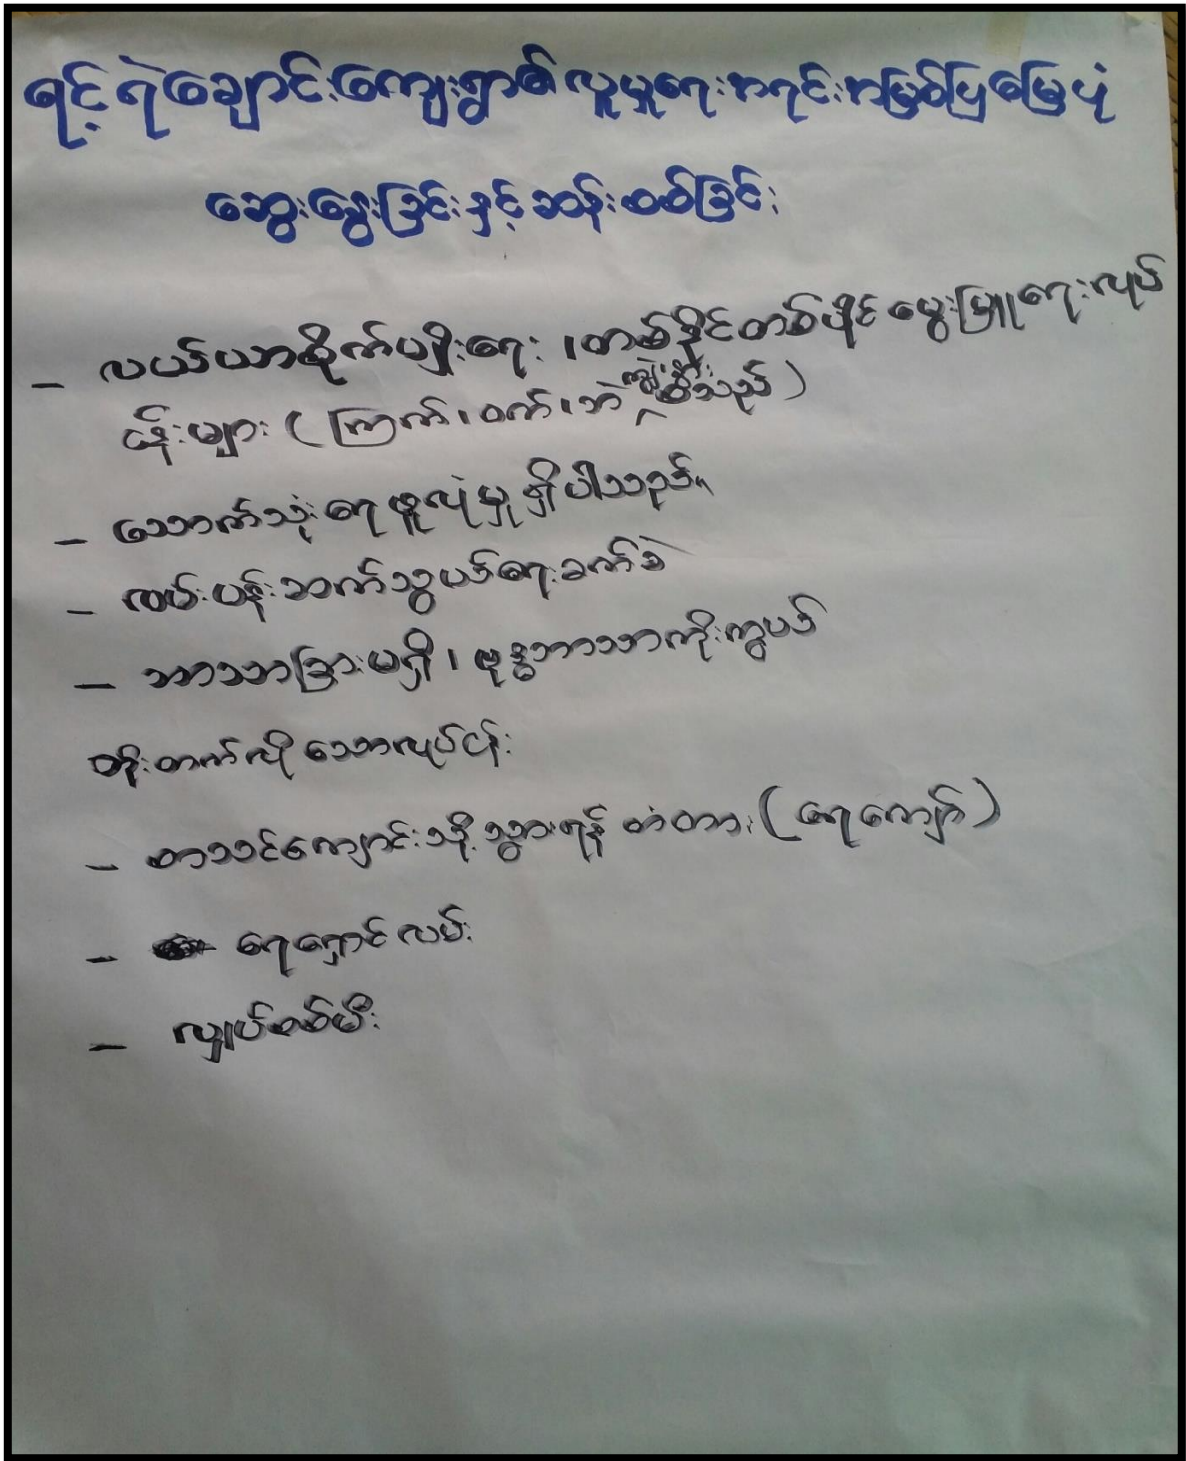 ရင့်ရဲချောင်းကျေးရွာ၏ လူမှုရေးအရင်းအမြစ်ပြမြေပုံ
ဆွေးနွေးခြင်းနှင့် ဆန်းစစ်ခြင်း
- လယ်ယာစိုက်ပျိုးရေး ၊ တစ်နိုင်တစ်ပိုင် မွေးမြူရေးလုပ်
ငန်းများ (ကြက်၊ ဝက်၊ ဘဲ ကျွဲ၊ နွား စသည်)
- သောက်သုံးရေ ဖူလုံမှု ရှိပါသည်။
- လမ်းပန်းဆက်သွယ်ရေး ခက်ခဲ
- ဘာသာခြားမရှိ ၊ ဗုဒ္ဓဘာသာကိုးကွယ်
တိုးတက်လိုသောလုပ်ငန်း
- စာသင်ကျောင်းသို့ သွားရန် တံတား (ရေကျော်)
- ရေရှောင်လမ်း
- လျှပ်စစ်မီး